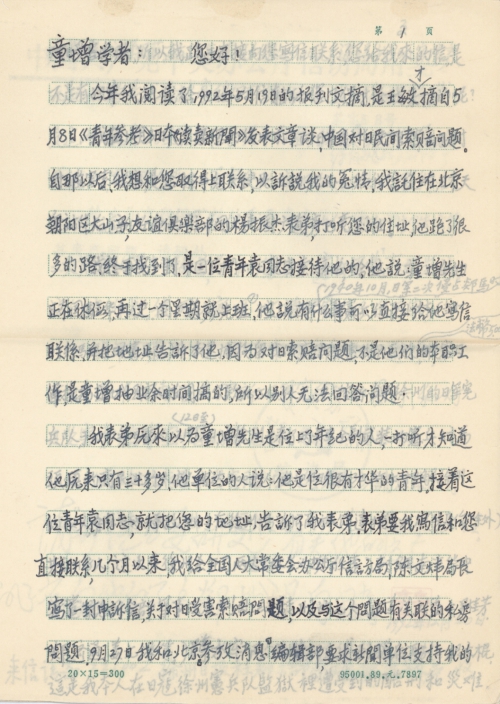 第 页
童增学者： 您好！
今年我阅读了1992年5月19日的报刊文摘，是王敏摘自5
才
月8日《青年参考》日本《读卖新闻》发表文章谈，中国对日民间索赔问题。
自那以后，我想和您取得上联系，以訴説我的冤情，我託住在北京
朝阳区大山子，友谊俱樂部的楊振杰表弟，打听您的住址，他跑了很
多的路，终于找到了，是一位青年袁同志接待他的，他説：童增先生
正在休假，再过一个星期就上班，他説有什么事可以直接给他寫信
联係，并把地址告訴了他，因为对日索赔问题，不是他们的本职工
作，是童增抽业余时间搞的，所以别人无法回答问题.
我表弟原來以为童增先生是位上了年纪的人，一打听才知道
他原来只有三十多岁，他单位的人说：他是位很有才华的青年，接着这
位青年袁同志，就把您的地址，告訴了我表弟，表弟要我寫信和您
直接联系，几个月以来，我给全国人大常委会办公厅信訪局，陈文炜局长
寫了一封申訴信，关于对日受害索赔問題，以及与这个問題有关联的私房
問題，9月27日我和北京《参攷消息》编辑部要求新聞单位支持我的
20×15=300
95001.89.元.7897